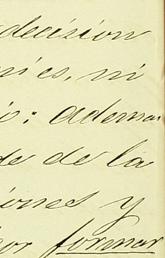 decision
nies, ni
o: ademas
de de la
iones y
por formar